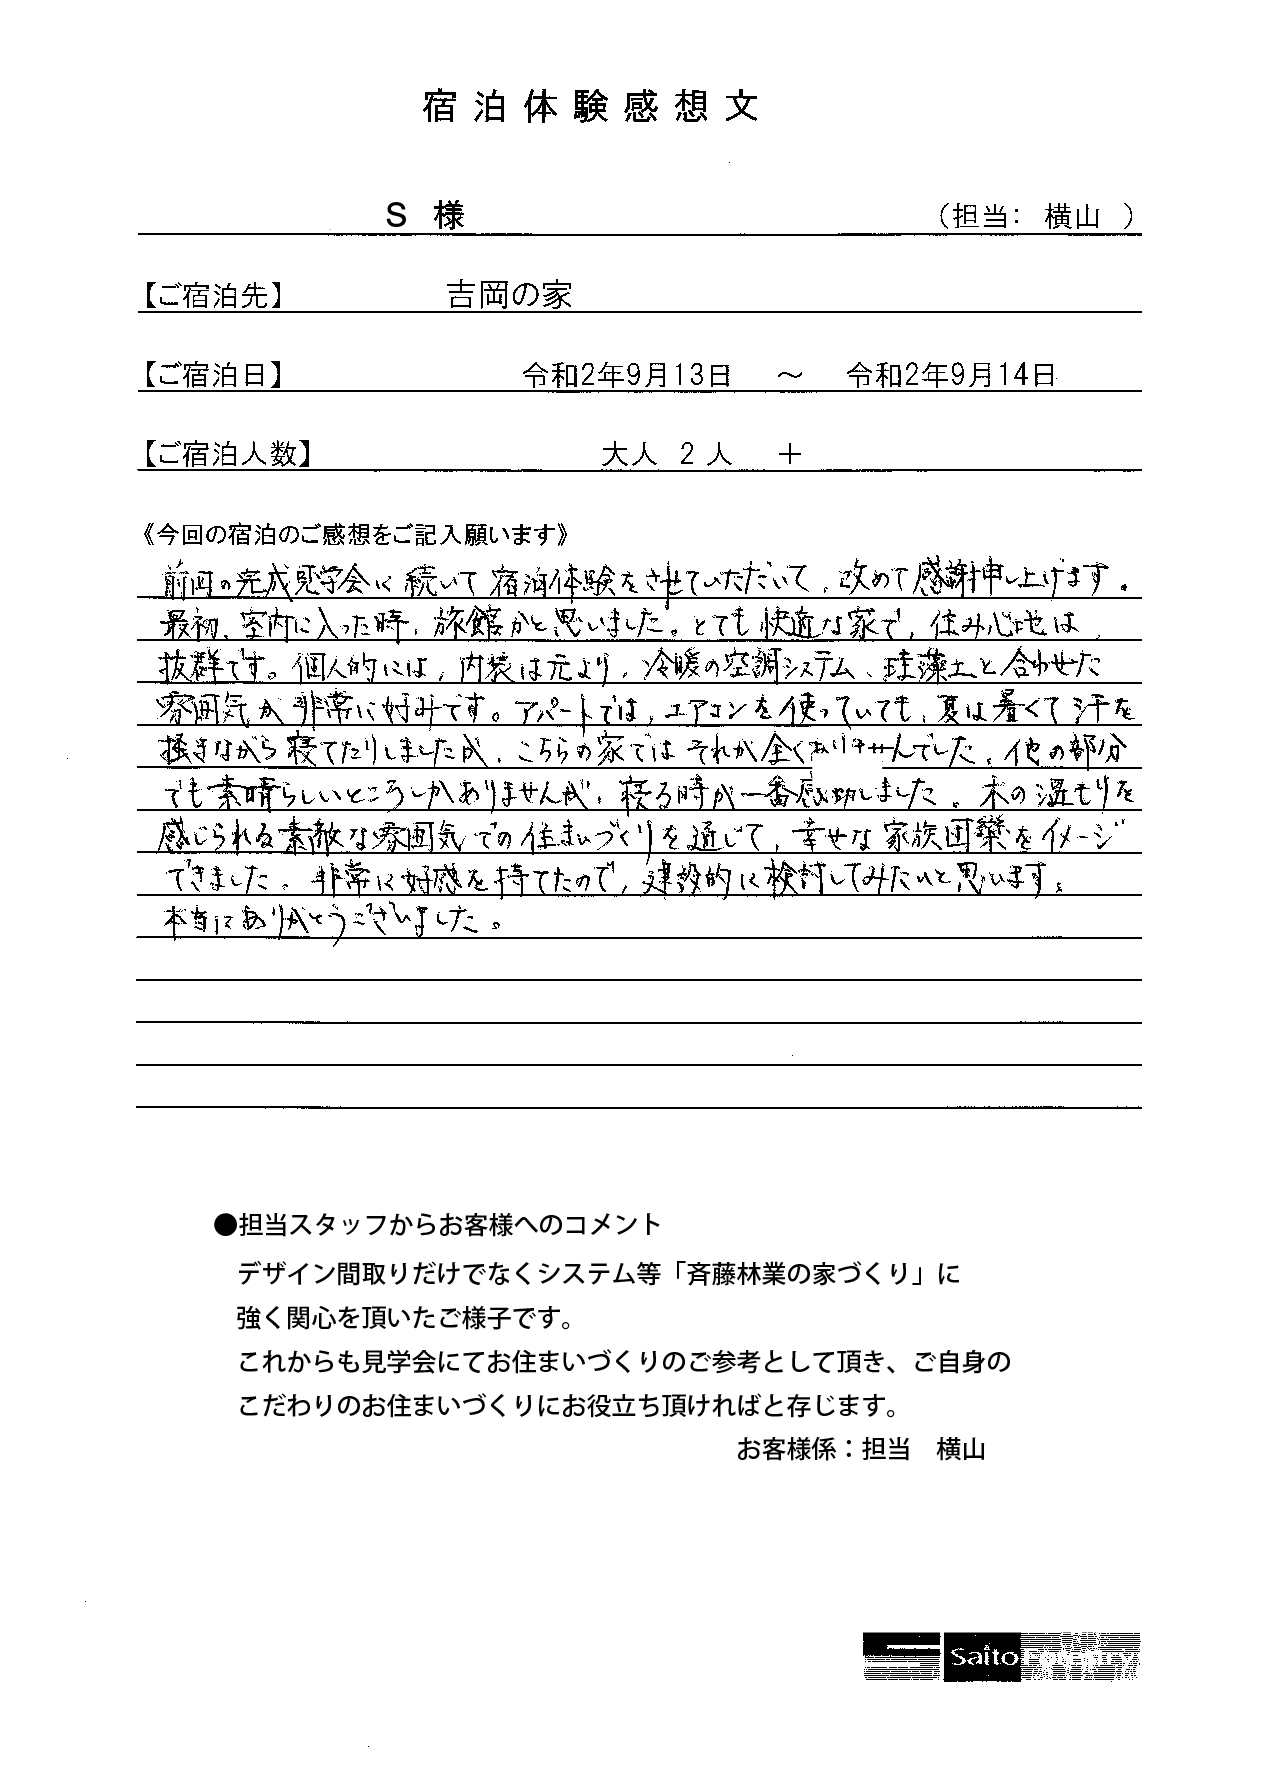 宿泊体験感想文
S 様 （担当： 横山 ）
【ご宿泊先】 吉岡の家
【ご宿泊日】 令和2年9月13日 ～ 令和2年9月14日
【ご宿泊人数】 大人 2 人 ＋
《今回の宿泊のご感想をご記入願います》
前回の完成見学会に続いて宿泊体験をさせていただいて、改めて感謝申し上げます。
最初、室内に入った時、旅館かと思いました。とても快適な家で、住み心地は、
抜群です。個人的には、内装は元より、冷暖の空調システム、珪藻土と合わせた
雰囲気が非常に好みです。アパートでは、エアコンを使っていても、夏は暑くて汗を
掻きながら寝てたりしましたが、こちらの家ではそれが全くありませんでした。他の部分
でも素晴らしいところしかありませんが、寝る時が一番感動しました。木の温もりを
感じられる素敵な雰囲気での住まいづくりを通じて、幸せな家族団欒をイメージ
できました。非常に好感を持てたので、建設的に検討してみたいと思います。
本当にありがとうございました。
●担当スタッフからお客様へのコメント
デザイン間取りだけでなくシステム等「斉藤林業の家づくり」に
強く関心を頂いたご様子です。
これからも見学会にてお住まいづくりのご参考として頂き、ご自身の
こだわりのお住まいづくりにお役立ち頂ければと存じます。
お客様係：担当 横山
Saito Forestry